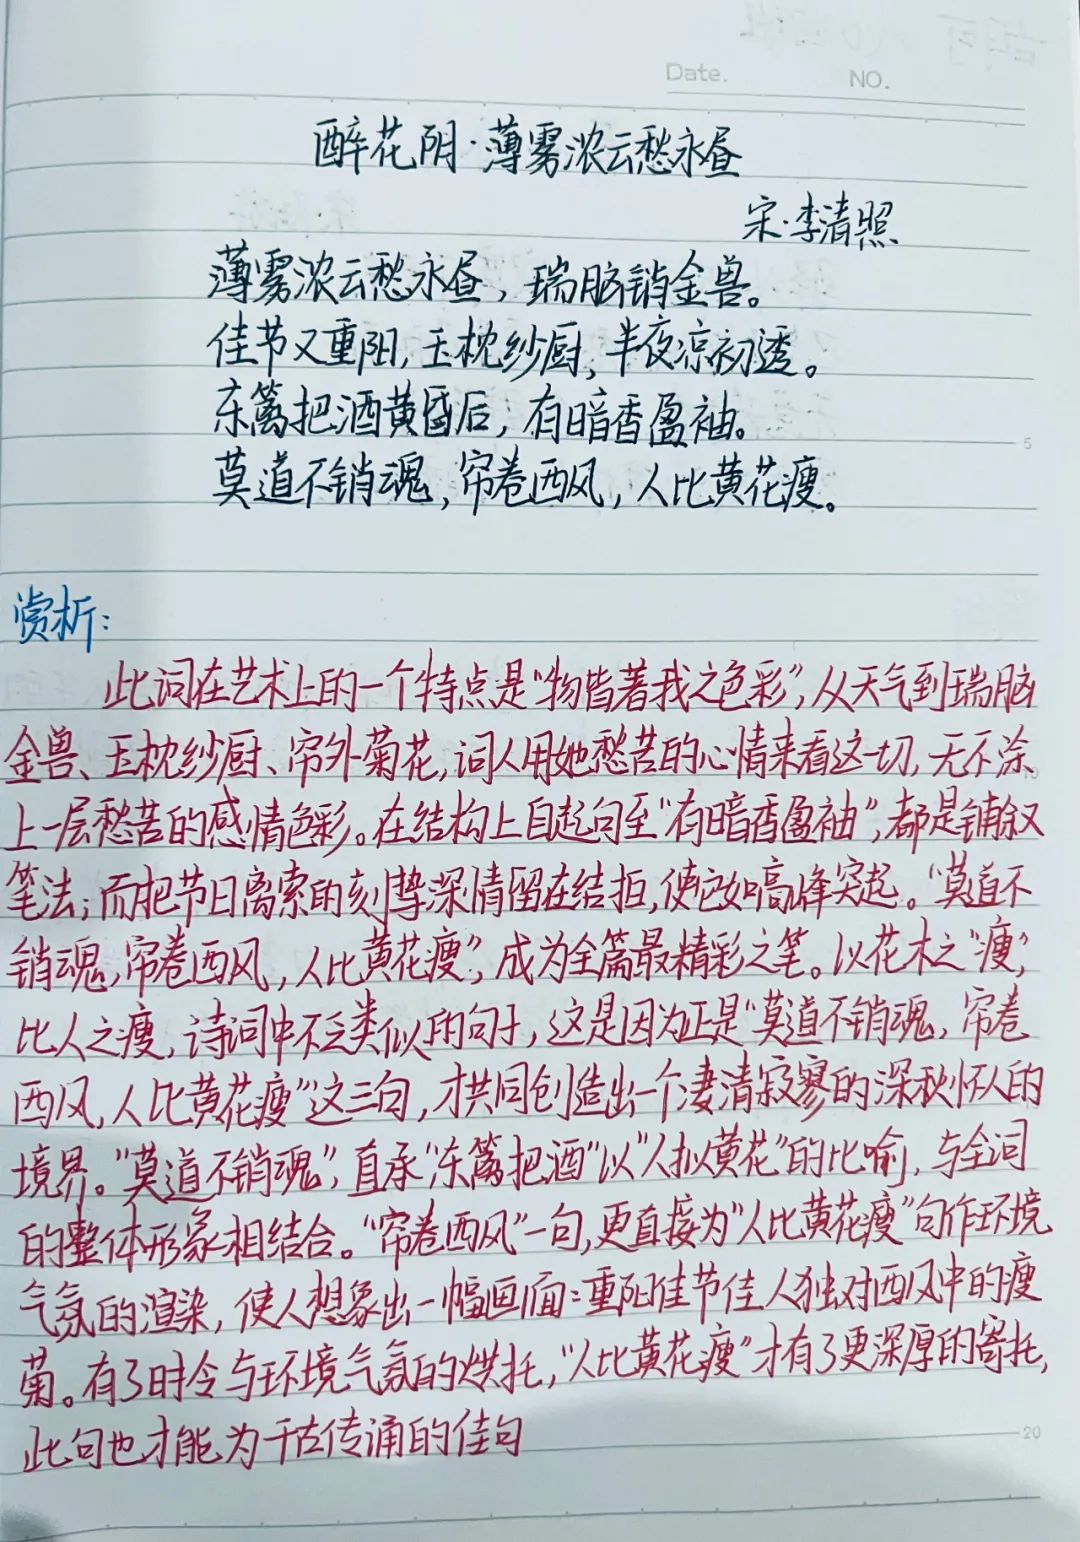 Date. NO.
醉花阴·薄雾浓云愁永昼
宋·李清照
薄雾浓云愁永昼，瑞脑销金兽。
佳节又重阳，玉枕纱厨，半夜凉初透。
东篱把酒黄昏后，有暗香盈袖。
5
莫道不销魂，帘卷西风，人比黄花瘦。
赏析：
此词在艺术上的一个特点是“物皆著我之色彩”，从天气到瑞脑
金兽、玉枕纱厨、帘外菊花，词人用她愁苦的心情来看这一切，无不涂
上一层愁苦的感情色彩。在结构上自起句至“有暗香盈袖”，都是铺叙
笔法；而把节日离索的刻挚深情留在结拍，使它如高峰突起。“莫道不
销魂，帘卷西风，人比黄花瘦”，成为全篇最精彩之笔。以花木之“瘦”，
比人之瘦，诗词中不乏类似的句子，这是因为正是“莫道不销魂，帘卷
西风，人比黄花瘦”这三句，才共同创造出一个凄清寂寥的深秋怀人的
境界。“莫道不销魂”，直承“东篱把酒”以“人拟黄花”的比喻，与全词
的整体形象相结合。“帘卷西风”一句，更直接为“人比黄花瘦”句作环境
气氛的渲染，使人想象出一幅画面：重阳佳节佳人独对西风中的瘦
菊。有了时令与环境气氛的烘托，“人比黄花瘦”才有了更深厚的寄托，
此句也才能为千古传诵的佳句
20